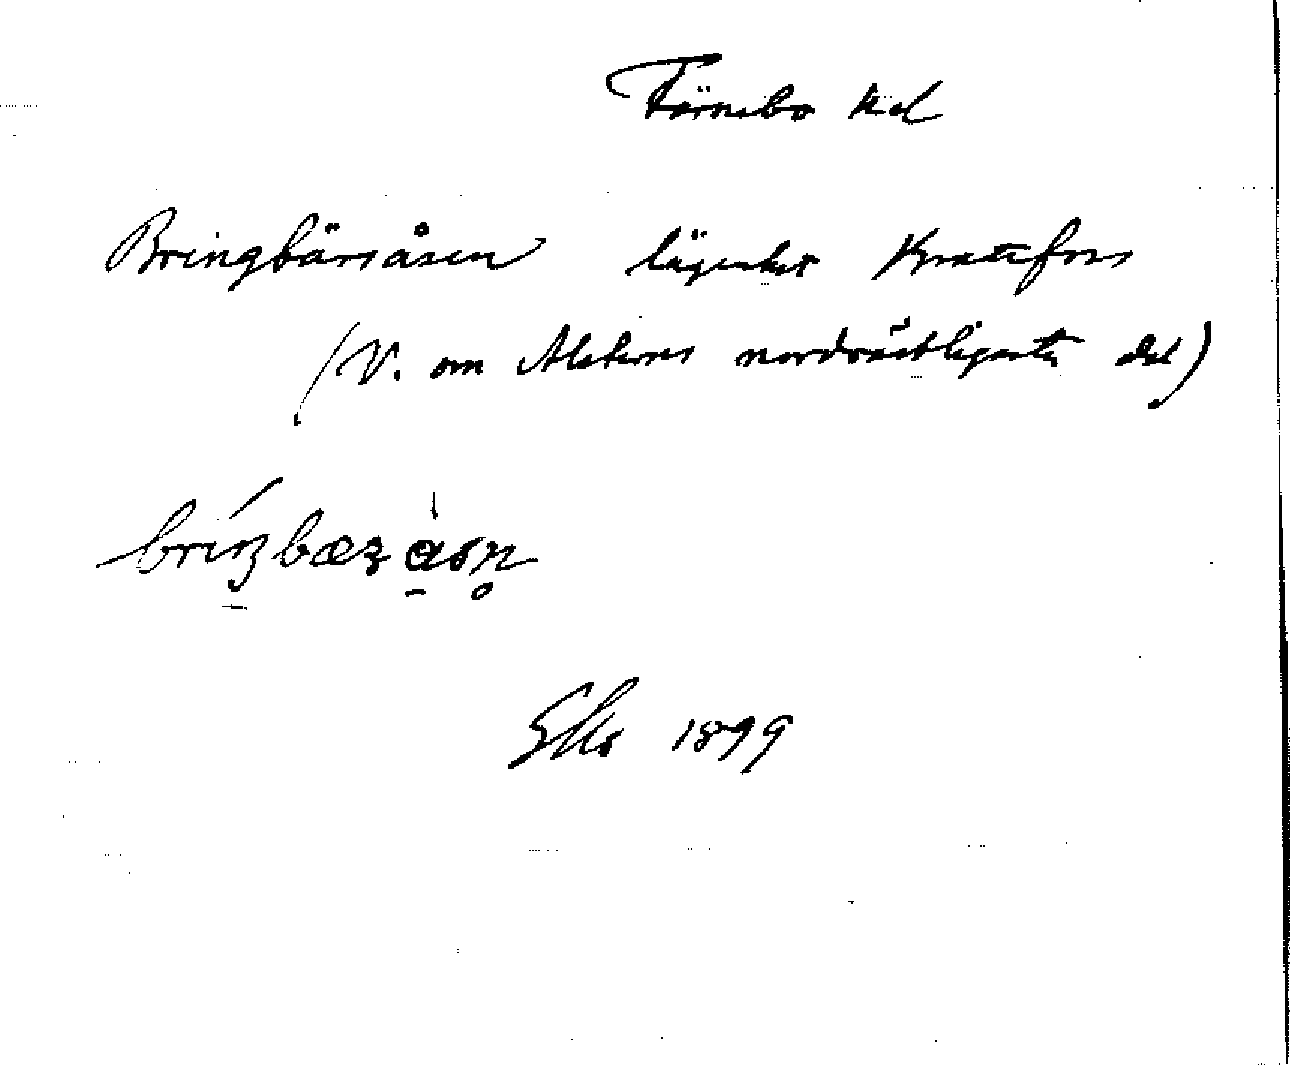 Färnebo hd
Bringbärsåsen lägenhet Kvatefors
(V. om Alsterns nordvästligaste del)
briŋbæzàsn̥
1899